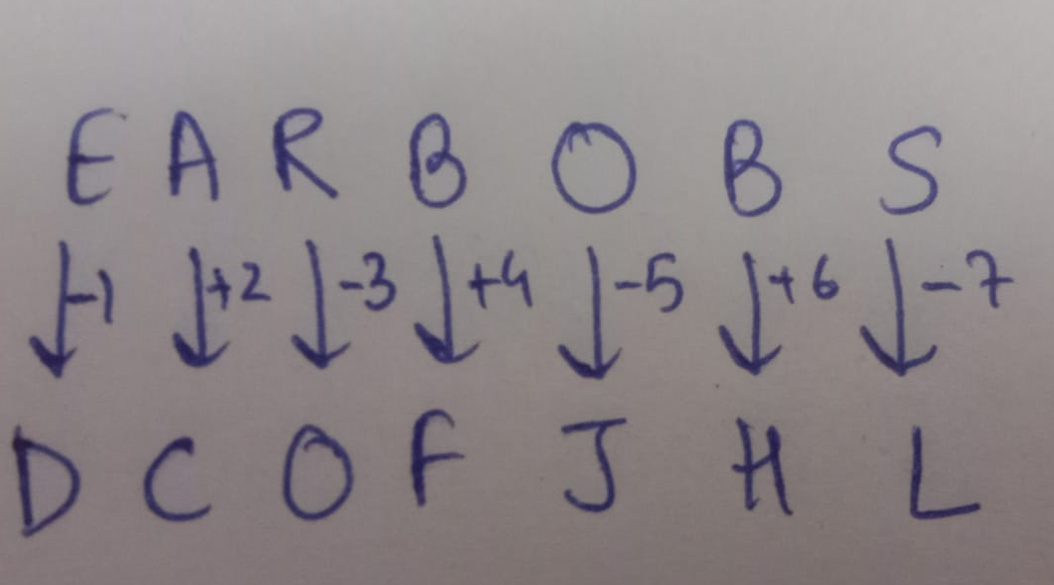 E A R B O B S
-1 +2 -3 +4 -5 +6 -7
D C O F J H L